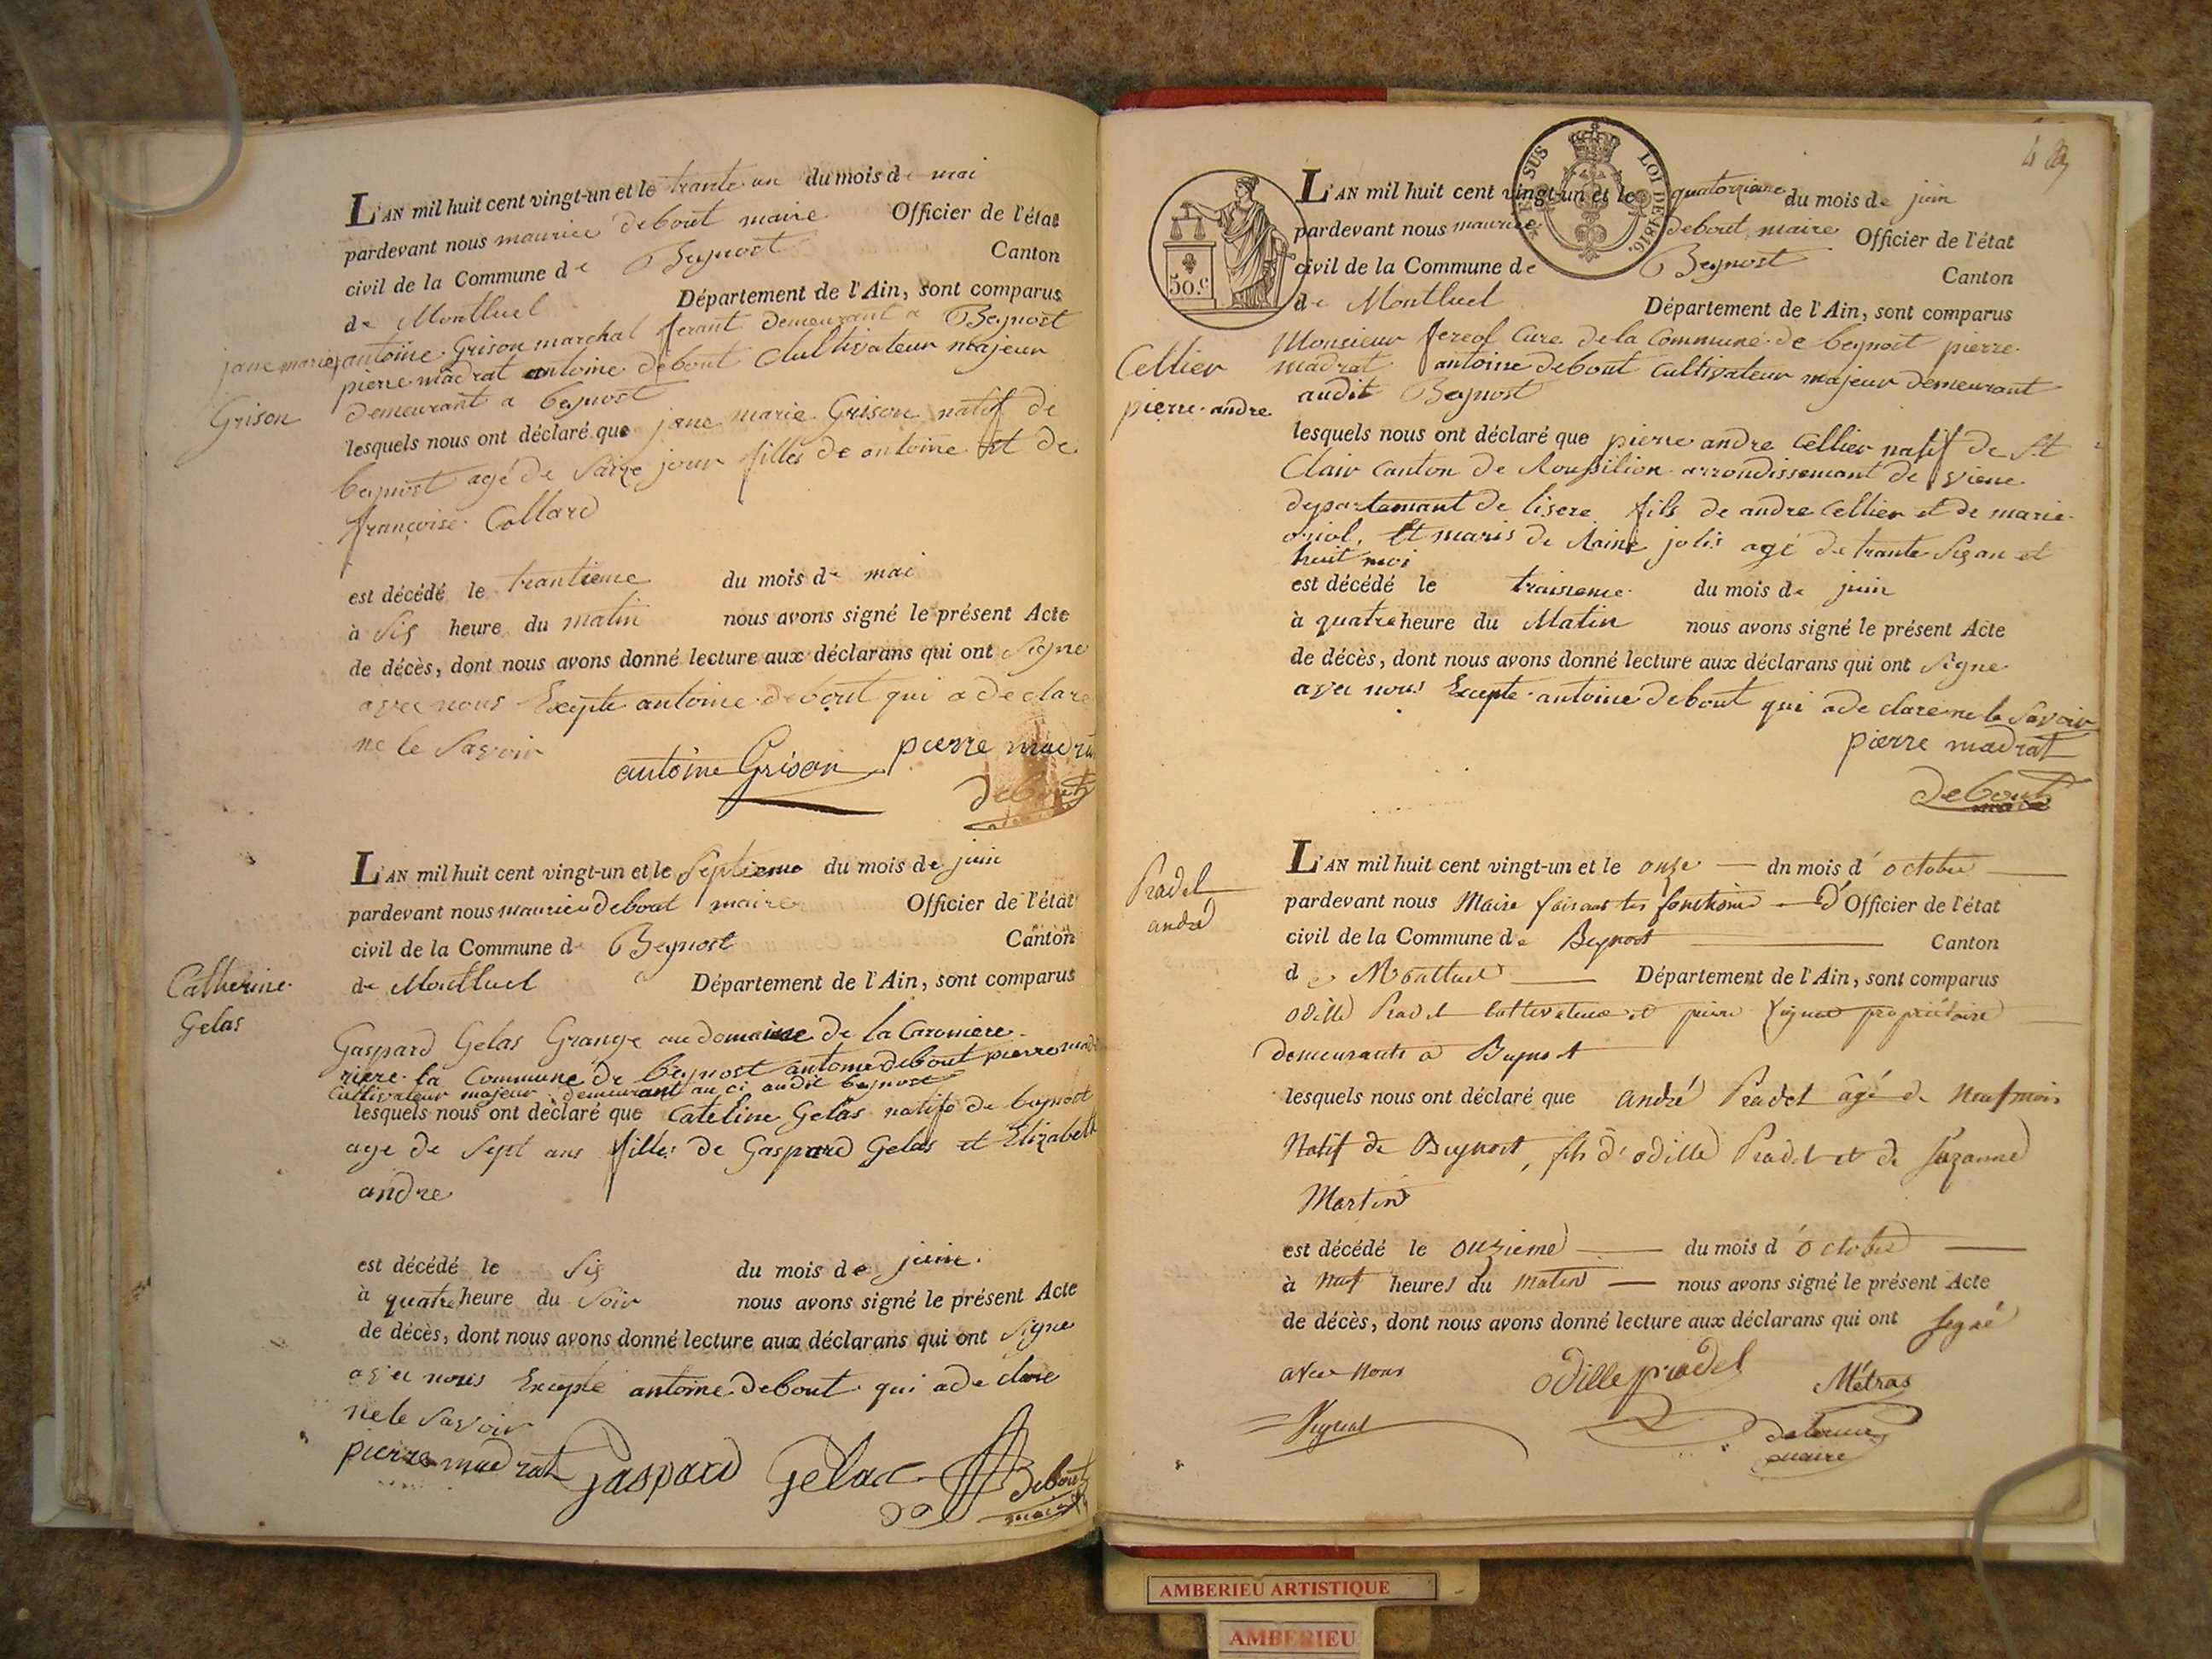 L'AN mil huit cent vingt-un et le trante un du mois de mai
pardevant nous maurice debout maire Officier de l'état
civil de la Commune de Beynost Canton
de Montluel Département de l'Ain, sont comparus
antoine Grison marchal ferant demeurant a Beynost
pierre madrat antoine debout Cultivateur majeur
demeurant a beynost
jane marie
Grison
lesquels nous ont déclaré que jane marie Grison natif de
beynost agé de saize jour filles de antoine et de
françoise Collard
est décédé le trantieme du mois de mai
à sis heure du matin nous avons signé le présent Acte
de décès, dont nous avons donné lecture aux déclarans qui ont signe
avec nous Excepte antoine debout qui a declare
ne le savoir
antoine Grison pierre madrat
debout
L'AN mil huit cent vingt-un et le septieme du mois de juin
pardevant nous maurice debout maire Officier de l'état
civil de la Commune de Beynost Canton
de Montluel Département de l'Ain, sont comparus
Catherine
Gelas
Gaspard Gelas Grange au domaine de la
riere la Commune de beynost antoine debout pierre
Cultivateur majeur demeurant au ci audit beynost
lesquels nous ont déclaré que Cateline Gelas natife de beynost
age de sept ans filles de Gaspard Gelas et Elizabeth
andre
est décédé le sis du mois de juin
à quatre heure du soir nous avons signé le présent Acte
de décès, dont nous avons donné lecture aux déclarans qui ont signe
avec nous Excepte antoine debout qui a de clare
ne le savoir
pierre madrat Gaspard Gelas Debout
maire
SUS LOI DE 1816.
50.c
L'AN mil huit cent vingt-un et le quatorzieme du mois de juin
pardevant nous maurice debout maire Officier de l'état
civil de la Commune de Beynost Canton
de Montluel Département de l'Ain, sont comparus
Monsieur fereol Cure de la Commune de beynost pierre
madrat antoine debout Cultivateur majeur demeurant
audit Beynost
Cellier
pierre andre
lesquels nous ont déclaré que pierre andre Cellier natif de St
Clair Canton de Roussilion arrondissemant de viene
departemant de lisere fils de andre Cellier et de marie
oriol, Et maris de Raine jolis agé de trante sis an et
huit moi
est décédé le traisieme du mois de juin
à quatre heure du Matin nous avons signé le présent Acte
de décès, dont nous avons donné lecture aux déclarans qui ont signe
avec nous Excepte antoine debout qui a de clare ne le savoir
pierre madrat
debout
maire
L'AN mil huit cent vingt-un et le onze dn mois d'octobre
pardevant nous Maire faisant les fonctions d'Officier de l'état
civil de la Commune de Beynost Canton
de Montluel Département de l'Ain, sont comparus
Pradel
andré
odille Pradel Cultivateur et pierre propriétaire
demeurants à Beynost
lesquels nous ont déclaré que andré Pradel âgé de neuf mois
Natif de Beynost, fils d'odille Pradel et de Suzanne
Martin
est décédé le onzieme du mois d'octobre
à neuf heures du matin nous avons signé le présent Acte
de décès, dont nous avons donné lecture aux déclarans qui ont signé
avec nous odille pradel Métras
maire
AMBERIEU ARTISTIQUE
AMBERIEU